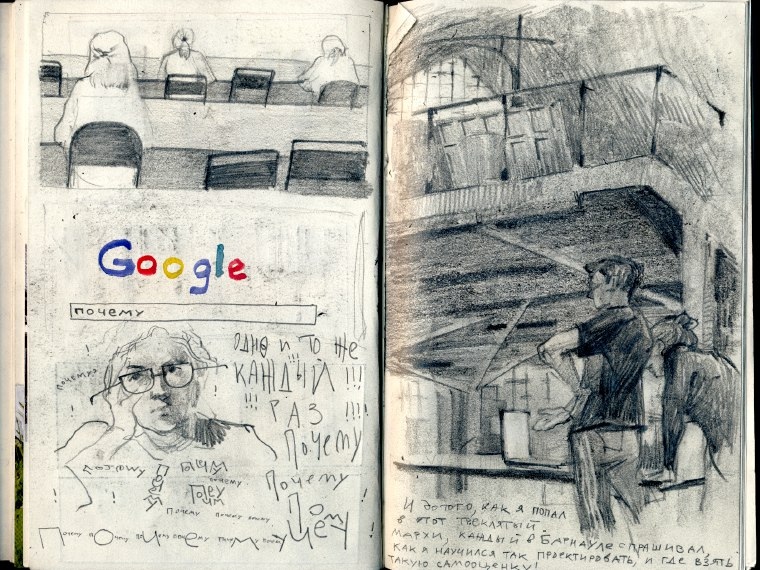 Google
почему
почему?
ОДНО И ТО ЖЕ
КАЖДЫЙ !!!
РАЗ !!!!
ПОЧЕМУ
Почему
ПОЧЕМУ
почему
Почему
почему почему
Почему почему
И до того, как я попал
в этот треклятый
МАРХИ, каждый в Барнауле спрашивал,
как я научился так проектировать, и где взять
такую самооценку!